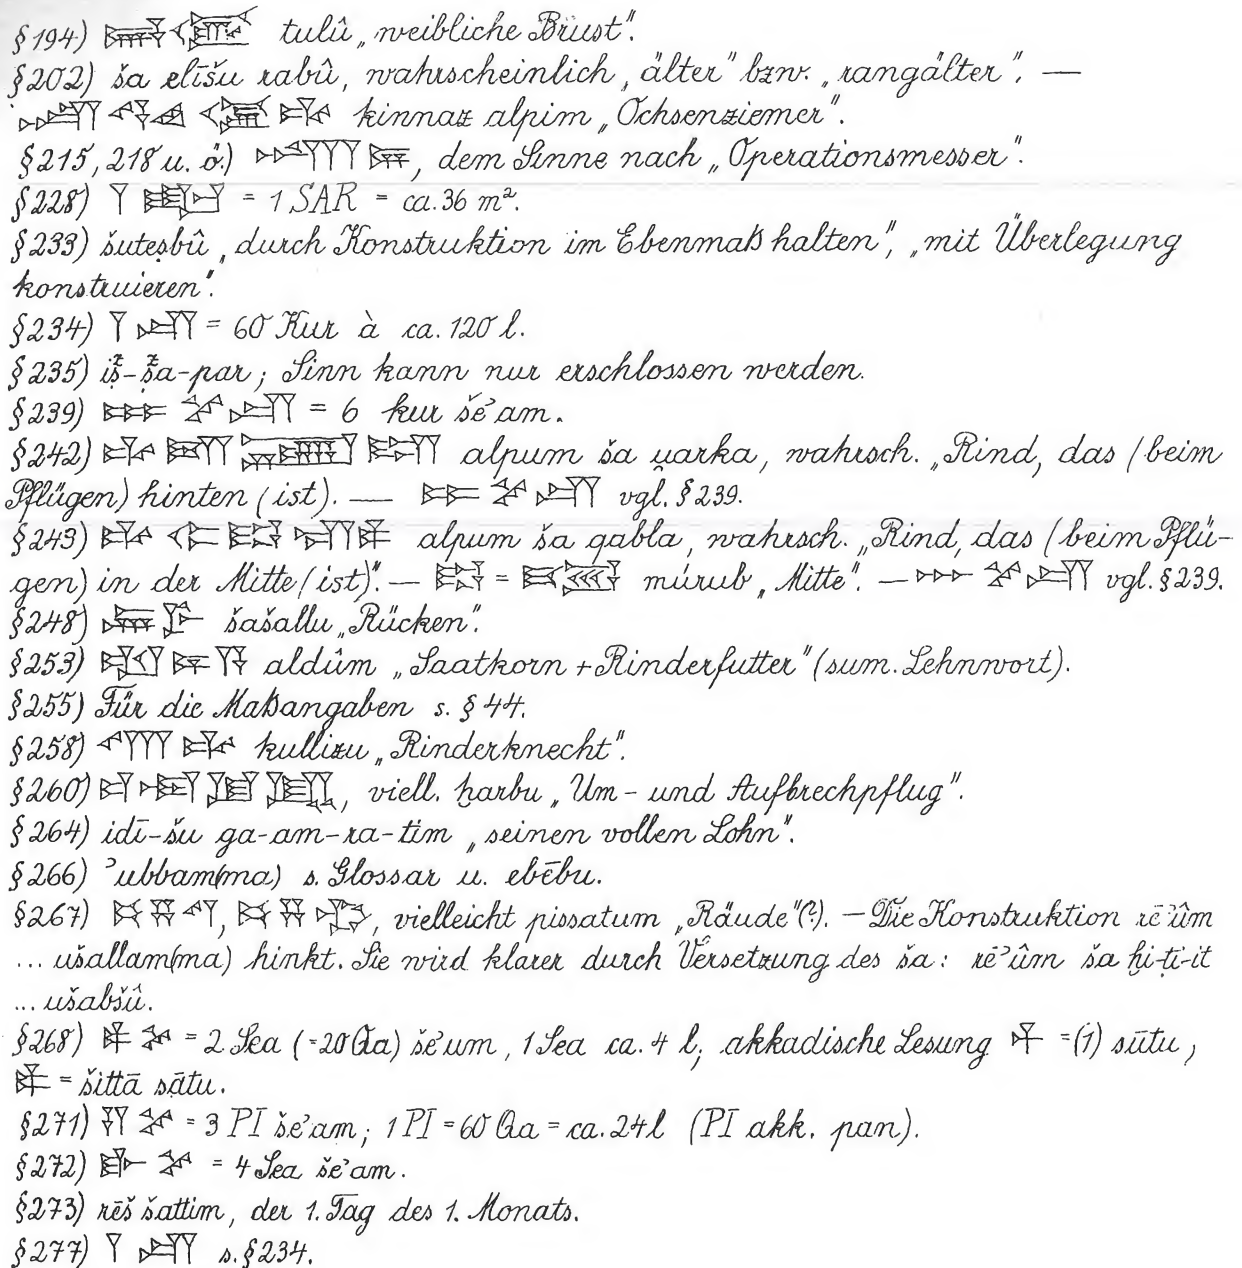 §194) tulû „weibliche Brust".
§202) ša elīšu rabû, wahrscheinlich „älter" bzw. „rangälter". —
kinnaz alpim „Ochsenziemer".
§215, 218 u. ö.) , dem Sinne nach „Operationsmesser".
§228) = 1 SAR = ca. 36 m².
§233) šuteṣbû „durch Konstruktion im Ebenmaß halten", „mit Überlegung
konstruieren".
§234) = 60 Kur à ca. 120 l.
§235) -par; Sinn kann nur erschlossen werden.
§239) = 6 kur šeʾam.
§242) alpum ša u̯arka, wahrsch. „Rind, das (beim
Pflügen) hinten (ist). — vgl. §239.
§243) alpum ša qabla, wahrsch. „Rind, das (beim Pflü-
gen) in der Mitte (ist)". — = múrub „Mitte". — vgl. §239.
§248) šašallu „Rücken".
§253) aldûm „Saatkorn + Rinderfutter" (sum. Lehnwort).
§255) Für die Maßangaben s. § 44.
§258) kullizu „Rinderknecht".
§260) , viell. ḫarbu „Um- und Aufbrechpflug".
§264) idī-šu ga-am-ra-tim „seinen vollen Lohn".
§266) ʾubbam(ma) s. Glossar u. ebēbu.
§267) , , vielleicht pissatum „Räude"(?). — Die Konstruktion rēʾûm
... ušallam(ma) hinkt. Sie wird klarer durch Versetzung des ša: rēʾûm ša ḫi-ṭi-it
... ušabšû.
§268) = 2 Sea (=20 Qa) šeʾum, 1 Sea ca. 4 l; akkadische Lesung = (1) sūtu,
= šittā sātu.
§271) = 3 PI šeʾam; 1 PI = 60 Qa = ca. 24 l (PI akk. pan).
§272) = 4 Sea šeʾam.
§273) rēš šattim, der 1. Tag des 1. Monats.
§277) s. §234.